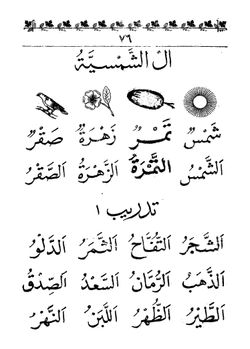 ٧٦
ال الشَّمْسِيَّةُ
شَمْسٌ تَمْرٌ زَهْرَةٌ صَقْرٌ
اَلشَّمْسُ اَلتَّمْرَةُ اَلزَّهْرَةُ اَلصَّقْرُ
تدريب ١
اَلشَّجَرُ اَلتُّفَّاحُ اَلثَّمَرُ اَلدَّلْوُ
اَلذَّهَبُ اَلرُّمَّانُ اَلسَّعْدُ اَلصِّدْقُ
اَلطَّيْرُ اَلظُّهْرُ اَللَّبَنُ اَلنَّهْرُ